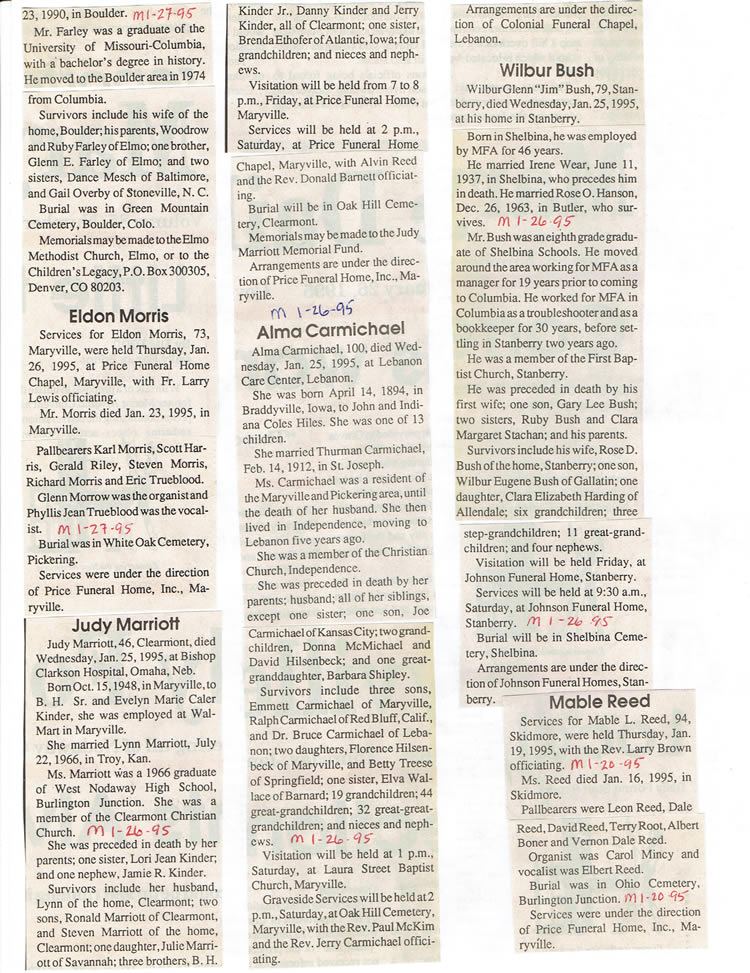 23, 1990, in Boulder. M 1-27-95
Mr. Farley was a graduate of the
University of Missouri-Columbia,
with a bachelor's degree in history.
He moved to the Boulder area in 1974
from Columbia.
Survivors include his wife of the
home, Boulder; his parents, Woodrow
and Ruby Farley of Elmo; one brother,
Glenn E. Farley of Elmo; and two
sisters, Dance Mesch of Baltimore,
and Gail Overby of Stoneville, N. C.
Burial was in Green Mountain
Cemetery, Boulder, Colo.
Memorials may be made to the Elmo
Methodist Church, Elmo, or to the
Children's Legacy, P.O. Box 300305,
Denver, CO 80203.
Eldon Morris
Services for Eldon Morris, 73,
Maryville, were held Thursday, Jan.
26, 1995, at Price Funeral Home
Chapel, Maryville, with Fr. Larry
Lewis officiating.
Mr. Morris died Jan. 23, 1995, in
Maryville.
Pallbearers Karl Morris, Scott Har-
ris, Gerald Riley, Steven Morris,
Richard Morris and Eric Trueblood.
Glenn Morrow was the organist and
Phyllis Jean Trueblood was the vocal-
ist. M 1-27-95
Burial was in White Oak Cemetery,
Pickering.
Services were under the direction
of Price Funeral Home, Inc., Ma-
ryville.
Judy Marriott
Judy Marriott, 46, Clearmont, died
Wednesday, Jan. 25, 1995, at Bishop
Clarkson Hospital, Omaha, Neb.
Born Oct. 15, 1948, in Maryville, to
B. H. Sr. and Evelyn Marie Caler
Kinder, she was employed at Wal-
Mart in Maryville.
She married Lynn Marriott, July
22, 1966, in Troy, Kan.
Ms. Marriott was a 1966 graduate
of West Nodaway High School,
Burlington Junction. She was a
member of the Clearmont Christian
Church. M 1-26-95
She was preceded in death by her
parents; one sister, Lori Jean Kinder;
and one nephew, Jamie R. Kinder.
Survivors include her husband,
Lynn of the home, Clearmont; two
sons, Ronald Marriott of Clearmont,
and Steven Marriott of the home,
Clearmont; one daughter, Julie Marri-
ott of Savannah; three brothers, B. H.
Kinder Jr., Danny Kinder and Jerry
Kinder, all of Clearmont; one sister,
Brenda Ethofer of Atlantic, Iowa; four
grandchildren; and nieces and neph-
ews.
Visitation will be held from 7 to 8
p.m., Friday, at Price Funeral Home,
Maryville.
Services will be held at 2 p.m.,
Saturday, at Price Funeral Home
Chapel, Maryville, with Alvin Reed
and the Rev. Donald Barnett officiat-
ing.
Burial will be in Oak Hill Ceme-
tery, Clearmont.
Memorials may be made to the Judy
Marriott Memorial Fund.
Arrangements are under the direc-
tion of Price Funeral Home, Inc., Ma-
ryville.
M 1-26-95
Alma Carmichael
Alma Carmichael, 100, died Wed-
nesday, Jan. 25, 1995, at Lebanon
Care Center, Lebanon.
She was born April 14, 1894, in
Braddyville, Iowa, to John and Indi-
ana Coles Hiles. She was one of 13
children.
She married Thurman Carmichael,
Feb. 14, 1912, in St. Joseph.
Ms. Carmichael was a resident of
the Maryville and Pickering area, until
the death of her husband. She then
lived in Independence, moving to
Lebanon five years ago.
She was a member of the Christian
Church, Independence.
She was preceded in death by her
parents; husband; all of her siblings,
except one sister; one son, Joe
Carmichael of Kansas City; two grand-
children, Donna McMichael and
David Hilsenbeck; and one great-
granddaughter, Barbara Shipley.
Survivors include three sons,
Emmett Carmichael of Maryville,
Ralph Carmichael of Red Bluff, Calif.,
and Dr. Bruce Carmichael of Leba-
non; two daughters, Florence Hilsen-
beck of Maryville, and Betty Treese
of Springfield; one sister, Elva Wal-
lace of Barnard; 19 grandchildren; 44
great-grandchildren; 32 great-great-
grandchildren; and nieces and neph-
ews. M 1-26-95
Visitation will be held at 1 p.m.,
Saturday, at Laura Street Baptist
Church, Maryville.
Graveside Services will be held at 2
p.m., Saturday, at Oak Hill Cemetery,
Maryville, with the Rev. Paul McKim
and the Rev. Jerry Carmichael offici-
ating.
Arrangements are under the direc-
tion of Colonial Funeral Chapel,
Lebanon.
Wilbur Bush
Wilbur Glenn "Jim" Bush, 79, Stan-
berry, died Wednesday, Jan. 25, 1995,
at his home in Stanberry.
Born in Shelbina, he was employed
by MFA for 46 years.
He married Irene Wear, June 11,
1937, in Shelbina, who precedes him
in death. He married Rose O. Hanson,
Dec. 26, 1963, in Butler, who sur-
vives. M 1-26-95
Mr. Bush was an eighth grade gradu-
ate of Shelbina Schools. He moved
around the area working for MFA as a
manager for 19 years prior to coming
to Columbia. He worked for MFA in
Columbia as a troubleshooter and as a
bookkeeper for 30 years, before set-
tling in Stanberry two years ago.
He was a member of the First Bap-
tist Church, Stanberry.
He was preceded in death by his
first wife; one son, Gary Lee Bush;
two sisters, Ruby Bush and Clara
Margaret Stachan; and his parents.
Survivors include his wife, Rose D.
Bush of the home, Stanberry; one son,
Wilbur Eugene Bush of Gallatin; one
daughter, Clara Elizabeth Harding of
Allendale; six grandchildren; three
step-grandchildren; 11 great-grand-
children; and four nephews.
Visitation will be held Friday, at
Johnson Funeral Home, Stanberry.
Services will be held at 9:30 a.m.,
Saturday, at Johnson Funeral Home,
Stanberry. M 1-26 95
Burial will be in Shelbina Ceme-
tery, Shelbina.
Arrangements are under the direc-
tion of Johnson Funeral Homes, Stan-
berry.
Mable Reed
Services for Mable L. Reed, 94,
Skidmore, were held Thursday, Jan.
19, 1995, with the Rev. Larry Brown
officiating. M 1-20-95
Ms. Reed died Jan. 16, 1995, in
Skidmore.
Pallbearers were Leon Reed, Dale
Reed, David Reed, Terry Root, Albert
Boner and Vernon Dale Reed.
Organist was Carol Mincy and
vocalist was Elbert Reed.
Burial was in Ohio Cemetery,
Burlington Junction. M 1-20 95
Services were under the direction
of Price Funeral Home, Inc., Ma-
ryville.